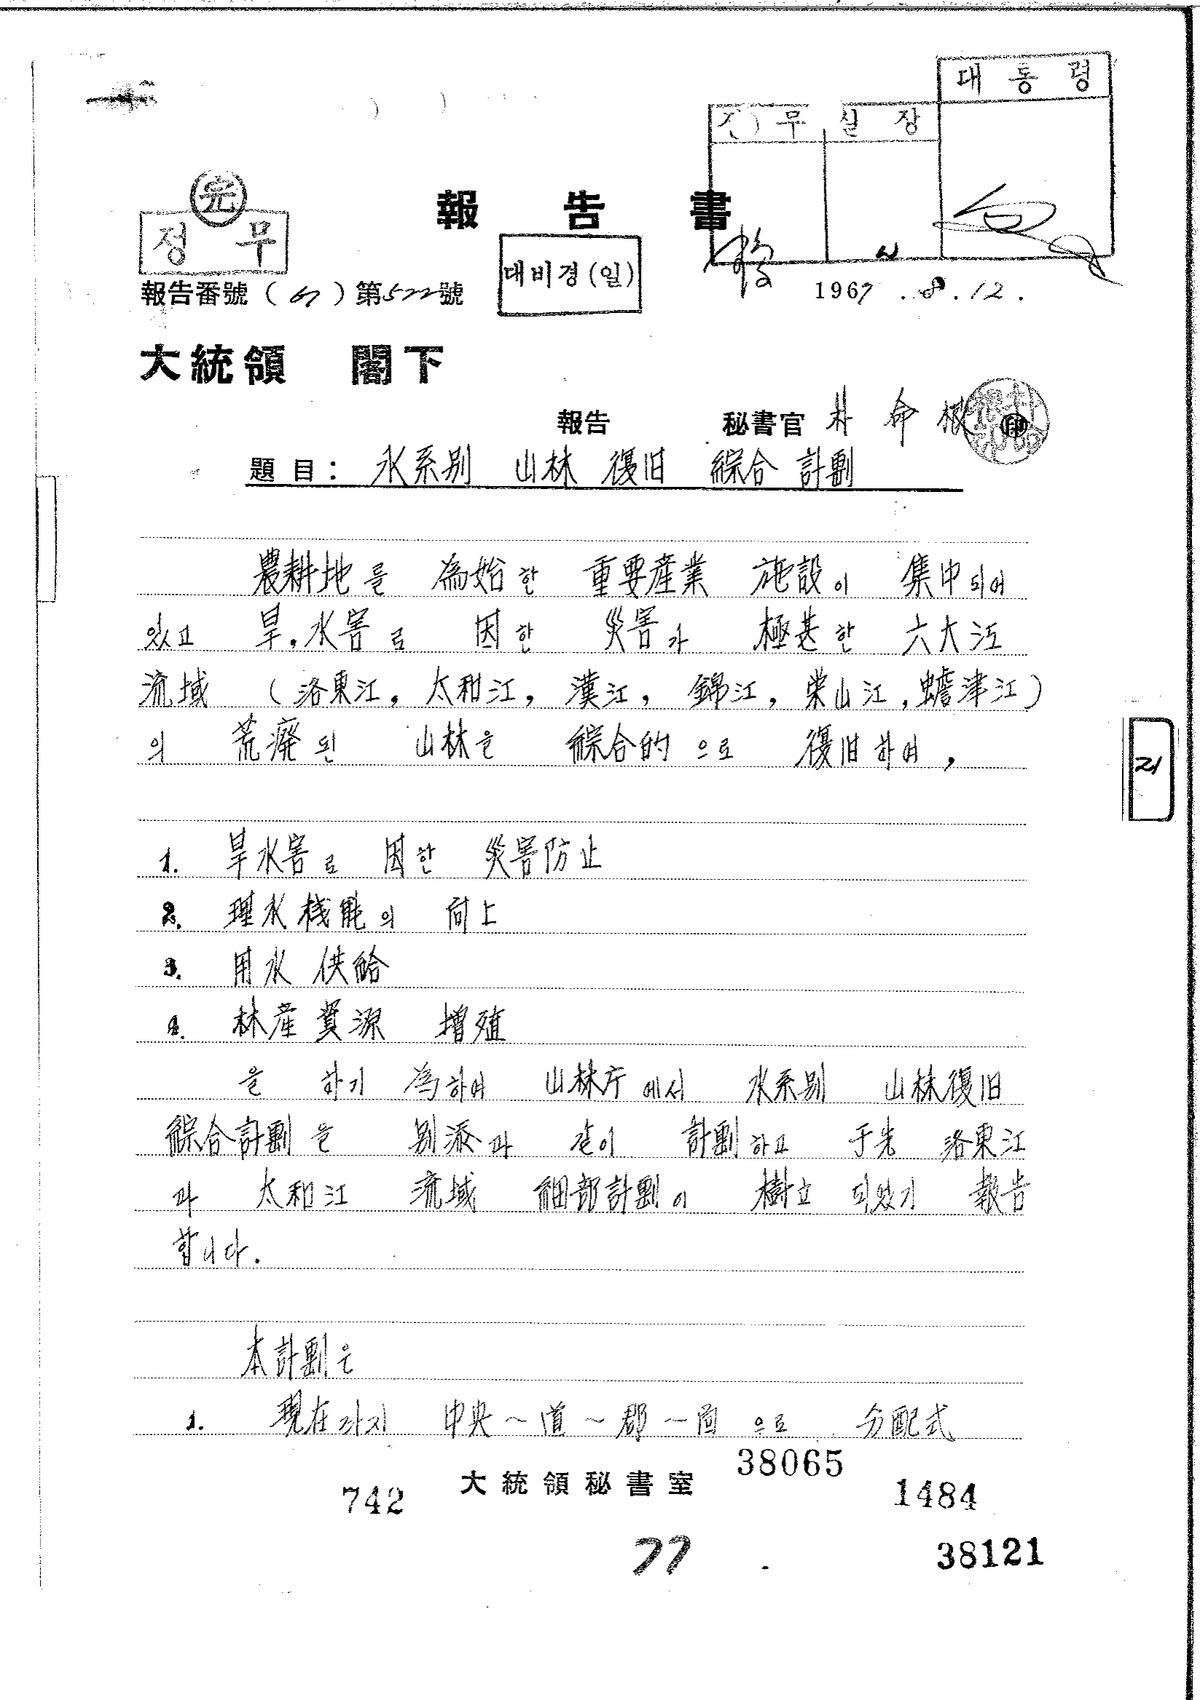 대통령
무실장
完
報告書
정무
대비경(일)
報告番號 (67) 第522號
1967.8.12.
大統領 閣下
報告 秘書官 朴命根 印
題目: 水系別 山林 復旧 綜合 計劃
農耕地를 為始한 重要産業 施設이 集中되어
있고 旱.水害로 因한 災害가 極甚한 六大江
流域 (洛東江, 太和江, 漢江, 錦江, 栄山江, 蟾津江)
의 荒廢된 山林을 綜合的으로 復旧하여,
1. 旱水害로 因한 災害防止
2. 理水機能의 向上
3. 用水 供給
4. 林産資源 增殖
을 하기 為하여 山林庁에서 水系別 山林復旧
綜合計劃을 別添과 같이 計劃하고 于先 洛東江
과 太和江 流域 細部計劃이 樹立 되었기 報告
합니다.
本計劃은
1. 現在까지 中央~道~郡~面으로 分配式
大統領秘書室
38065
742
1484
77
38121
21